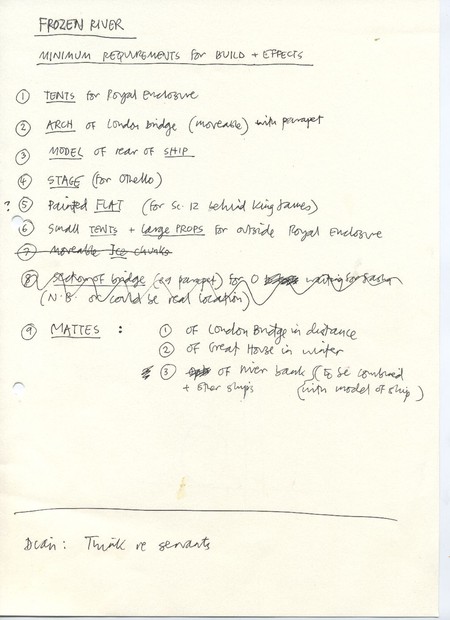 FROZEN RIVER
MINIMUM REQUIREMENTS for BUILD + EFFECTS
① TENTS for Royal Enclosure
② ARCH of London Bridge (moveable) with parapet
③ MODEL of rear of SHIP
④ STAGE (for Othello)
? ⑤ Painted FLAT (for Sc. 12 behind King James)
⑥ Small TENTS + Large PROPS for outside Royal Enclosure
⑦ Moveable Ice chunks
⑧ Section of bridge (eg parapet) for O waiting for Sasha
(N.B. or could be real location)
⑨ MATTES : ① of London Bridge in distance
② of Great House in winter
③ of river bank (To be combined
+ other ships (with model of ship)
Dean: Think re servants